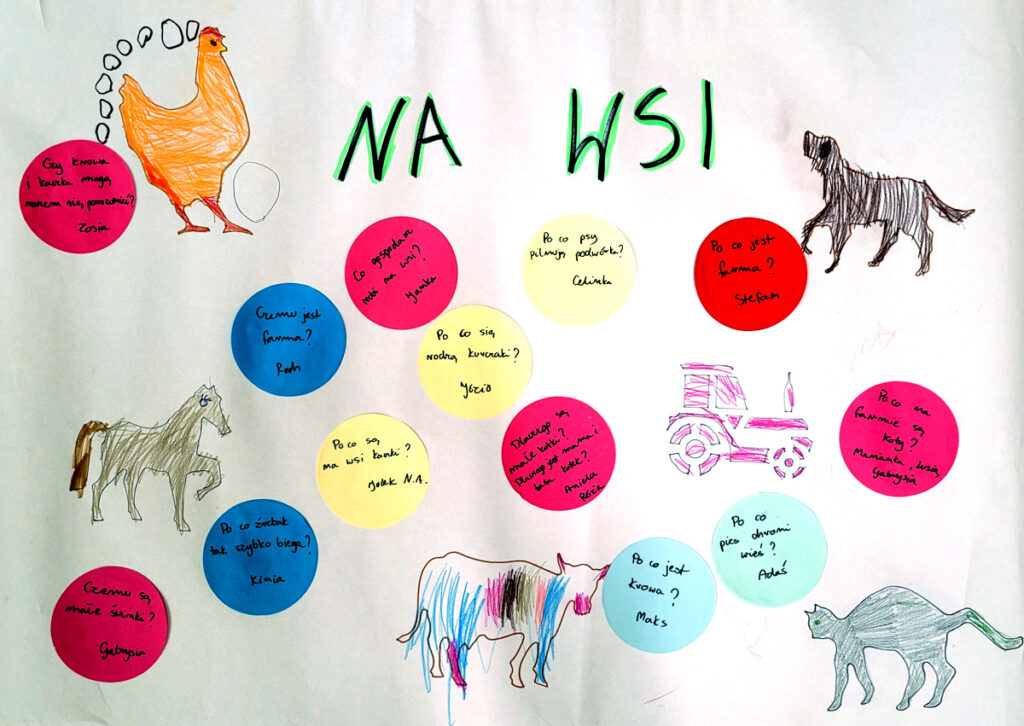 NA WSI
Czy krowa
i kaczka mogą
razem się porozumieć?
Zosia
Co gospodarz
robi na wsi?
Janka
Po co psy
pilnują podwórka?
Celinka
Po co jest
farma?
Stefan
Czemu jest
farma?
Roch
Po co się
rodzą kurczaki?
Józio
Po co są
na wsi kaczki?
Julek N.A.
Dlaczego są
małe kotki?
Dlaczego jest mama i
tata kotek?
Aniela
Róża
Po co na
farmie są
koty?
Marianka, Lusia,
Gabrysia
Po co źrebak
tak szybko biega?
Kimia
Po co
pies chroni
wieś?
Adaś
Po co jest
krowa?
Maks
Czemu są
małe świnki?
Gabrysia